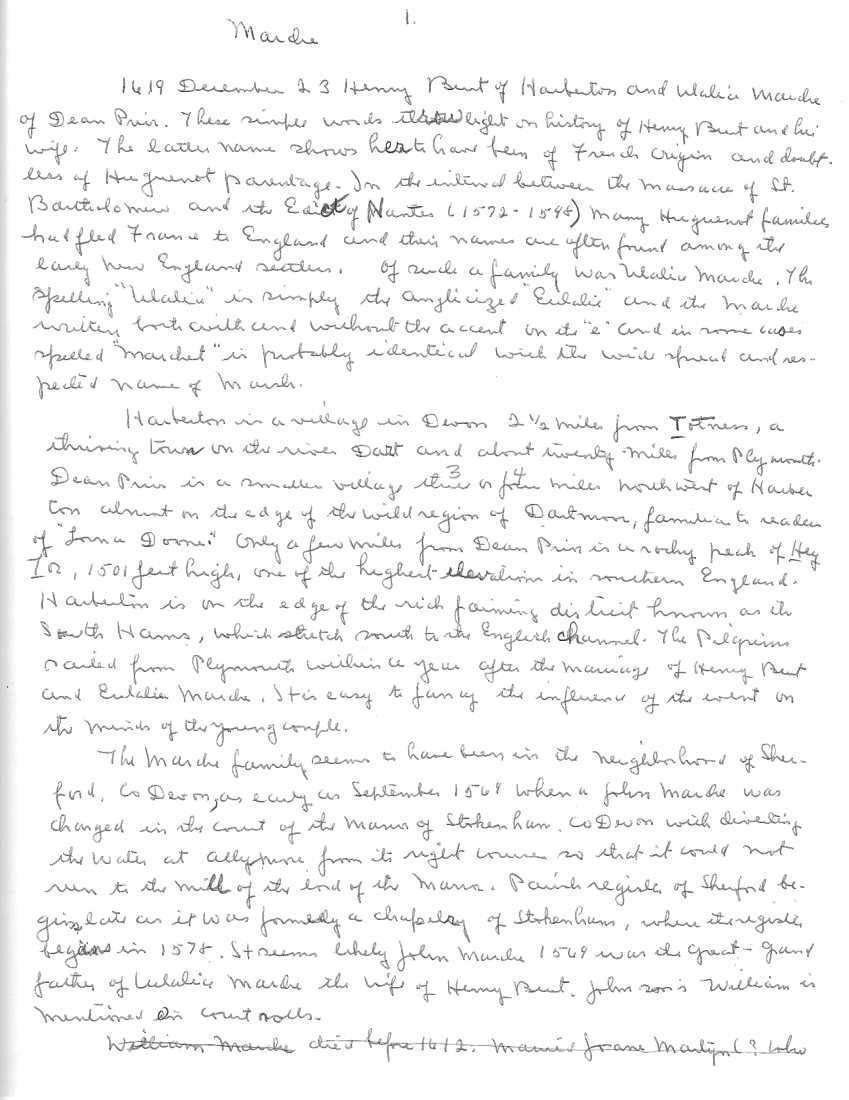 1.
Marche
1619 December 23 Henry Burt of Harberton and Ulalia Marche
of Dean Prior. These simple words throw light on history of Henry Burt and his
wife. The latter name shows her to have been of French origin and doubt-
less of Huguenot parentage. In the interval between the massacre of St.
Bartholomew and the Edict of Nantes (1572-1598) many Huguenot families
had fled France to England and their names are often found among the
early New England settlers. Of such a family was Ulalia Marche. The
spelling "Ulalia" is simply the anglicized "Eulalie" and the Marche
written both with and without the accent on the "e" and in some cases
spelled "Marchet" is probably identical with the wide spread and res-
pected name of Marsh.
Harberton is a village in Devon 2 1/2 miles from Totness, a
thriving town on the river Dart and about twenty miles from Plymouth.
Dean Prior is a smaller village three 3 or four 4 miles northwest of Harber
ton almost on the edge of the wild region of Dartmoor, familiar to readers
of "Lorna Doone." Only a few miles from Dean Prior is a rocky peak of Hey
Tor, 1501 feet high, one of the highest elevations in southern England.
Harberton is on the edge of the rich farming district known as the
South Hams, which stretch south to the English channel. The Pilgrims
sailed from Plymouth within a year after the marriage of Henry Burt
and Eulalia Marche. It is easy to fancy the influence of the event on
the minds of the young couple.
The Marche family seems to have been in the neighborhood of Sher-
ford, Co Devon, as early as September 1569 when a John Marche was
charged in the court of the Manor of Stokenham, Co Devon with diverting
the water at from its right course so that it could not
run to the mill of the lord of the Manor. Parish register of Sherford be-
gins late as it was formerly a chapelry of Stokenham, where the register
begins in 1578. It seems likely John Marche 1569 was the great-grand
father of Eulalia Marche the wife of Henry Burt. John son's William is
mentioned in court rolls.
William Marche died before 1612. Married Joane Martyn (? who